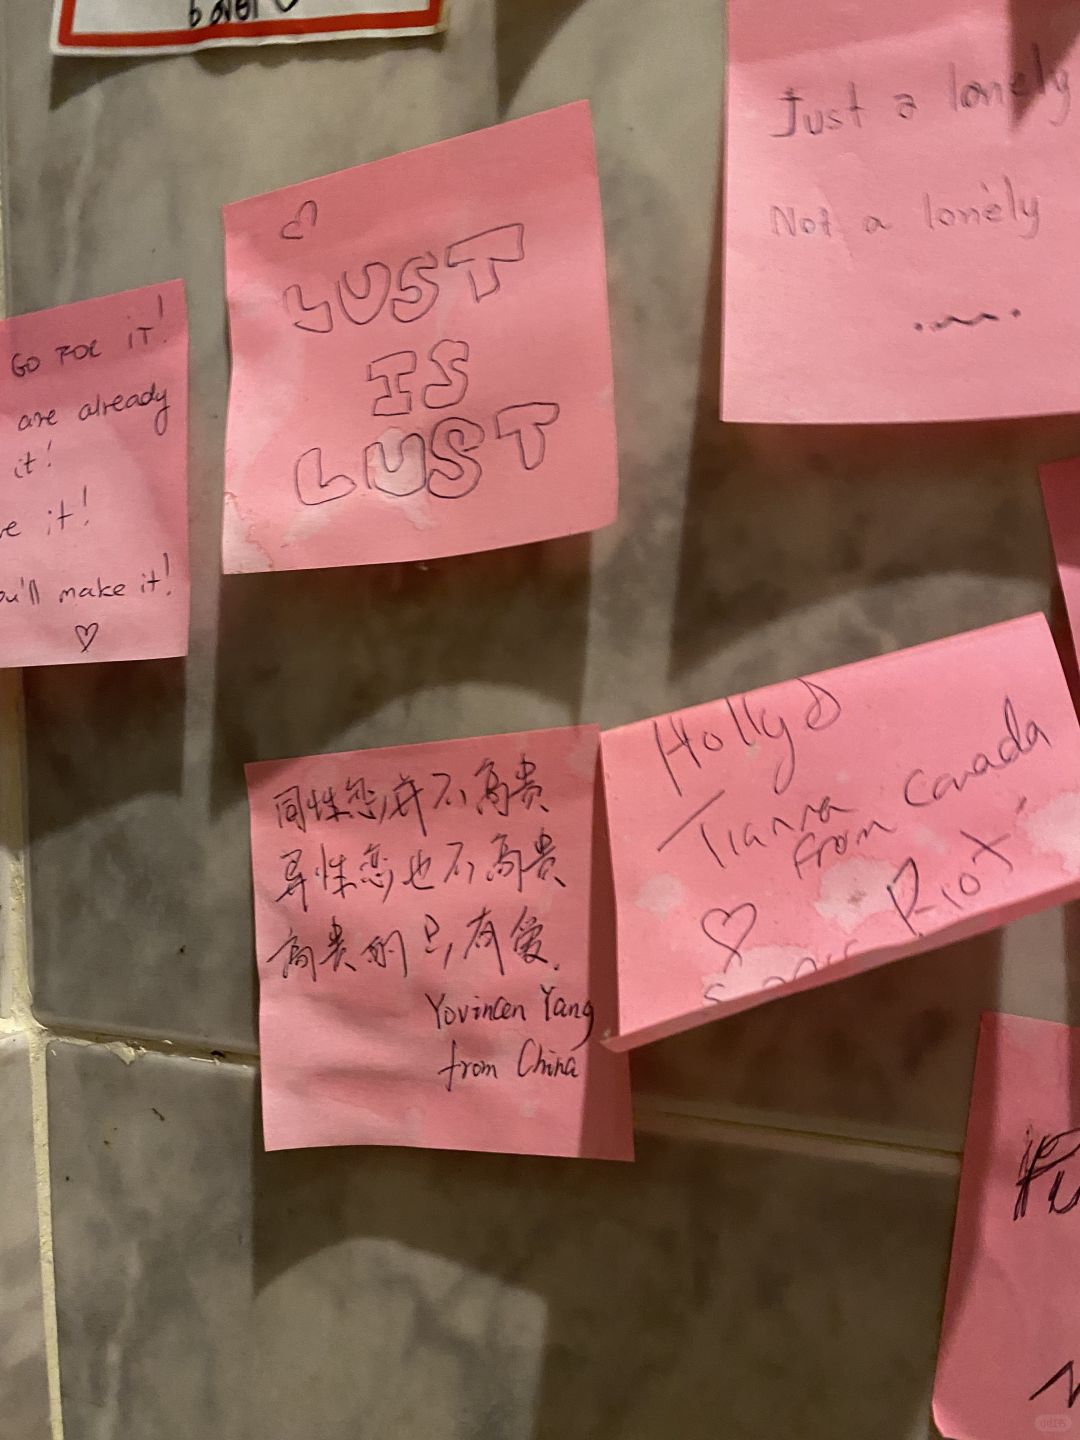 Just a lonely
Not a lonely
LUST
IS
LUST
GO FOR IT!
are already
it!
it!
ou'll make it!
Holly
Tianna
from Canada
同性恋并不高贵
异性恋也不高贵
高贵的只有爱.
Yovincen Yang
from China
小红书